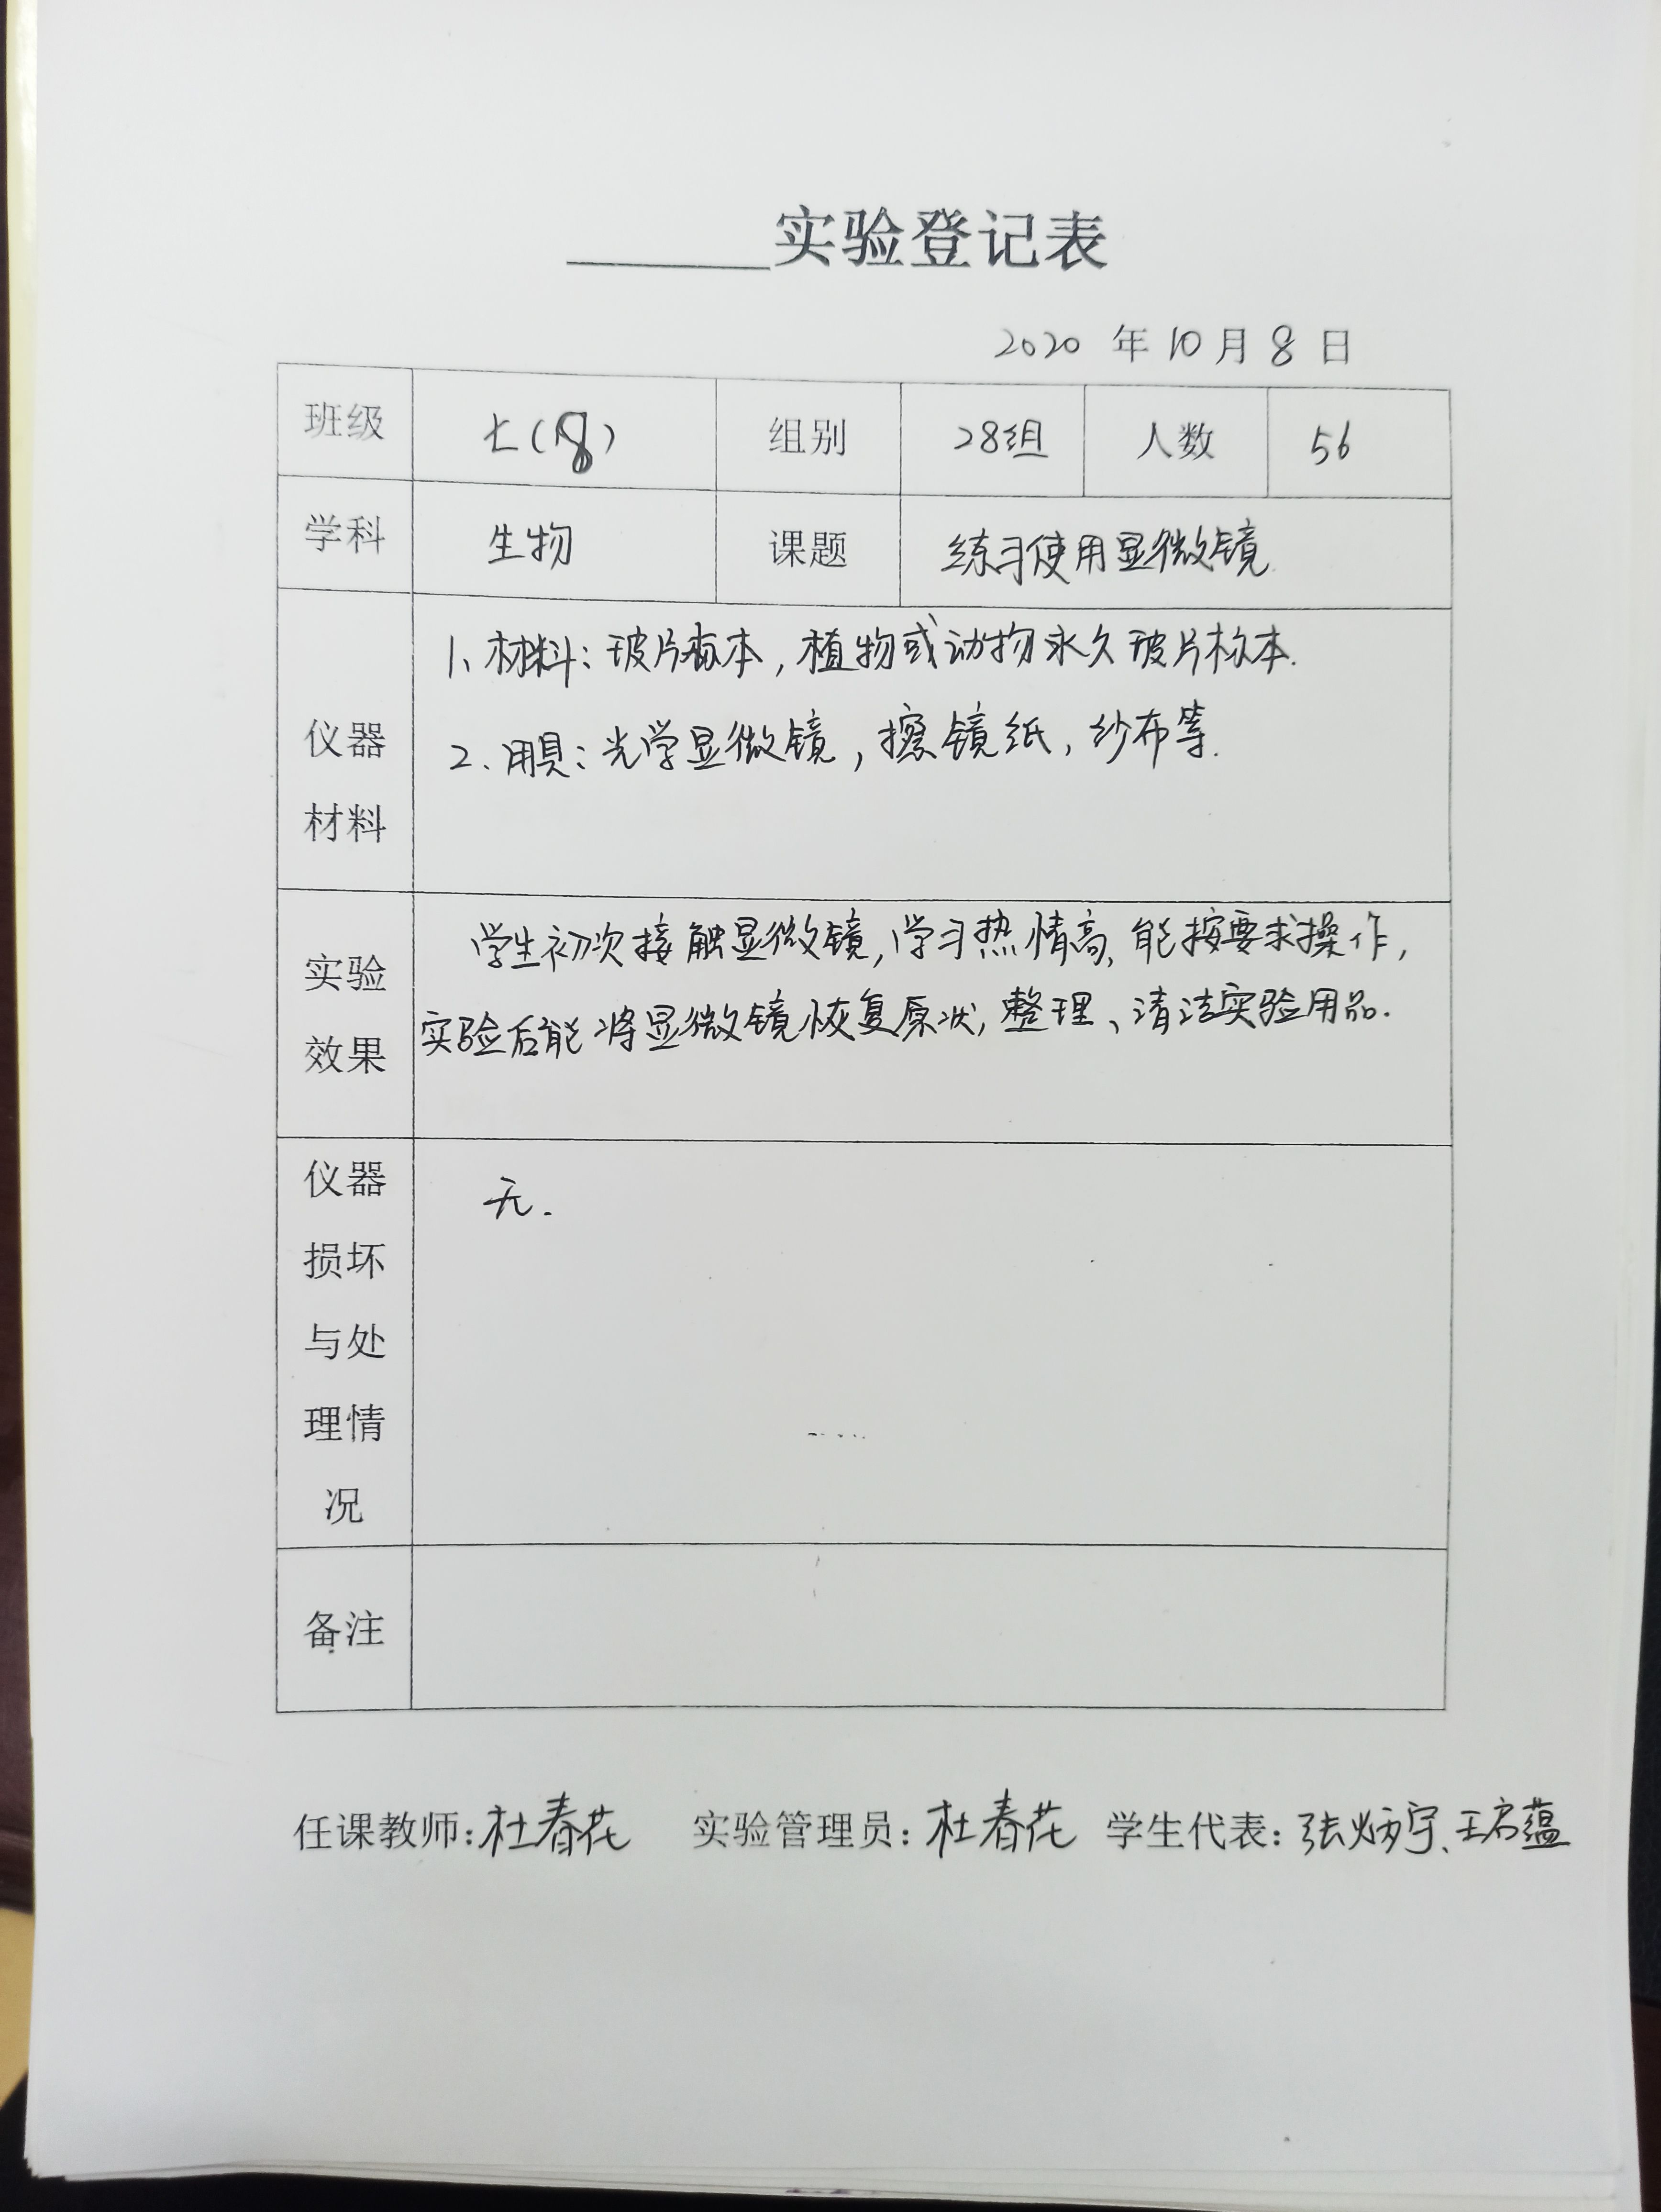 ______实验登记表
2020 年 10 月 8 日
班级 七(8) 组别 28组 人数 56
学科 生物 课题 练习使用显微镜
仪器
材料
1、材料：玻片标本，植物或动物永久玻片标本.
2、用具：光学显微镜，擦镜纸，纱布等.
实验
效果
学生初次接触显微镜,学习热情高,能按要求操作,
实验后能将显微镜恢复原状,整理、清洁实验用品.
仪器
损坏
与处
理情
况
无.
备注
任课教师:杜春花 实验管理员:杜春花 学生代表:张炳宇、王启蕴